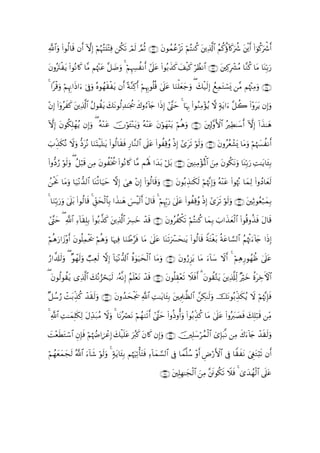 أَيْنَ شُرَكَآؤُكُمُ ٱلَّذِينَ كُنتُمْ تَزْعُمُونَ ۝ ثُمَّ لَمْ تَكُن فِتْنَتُهُمْ إِلَّآ أَن قَالُوا۟ وَٱللَّهِ
رَبِّنَا مَا كُنَّا مُشْرِكِينَ ۝ ٱنظُرْ كَيْفَ كَذَبُوا۟ عَلَىٰٓ أَنفُسِهِمْ ۚ وَضَلَّ عَنْهُم مَّا كَانُوا۟ يَفْتَرُونَ
۝ وَمِنْهُم مَّن يَسْتَمِعُ إِلَيْكَ ۖ وَجَعَلْنَا عَلَىٰ قُلُوبِهِمْ أَكِنَّةً أَن يَفْقَهُوهُ وَفِىٓ ءَاذَانِهِمْ وَقْرًا ۚ
وَإِن يَرَوْا۟ كُلَّ ءَايَةٍ لَّا يُؤْمِنُوا۟ بِهَا ۚ حَتَّىٰٓ إِذَا جَآءُوكَ يُجَٰدِلُونَكَ يَقُولُ ٱلَّذِينَ كَفَرُوٓا۟ إِنْ
هَٰذَآ إِلَّآ أَسَٰطِيرُ ٱلْأَوَّلِينَ ۝ وَهُمْ يَنْهَوْنَ عَنْهُ وَيَنْـَٔوْنَ عَنْهُ ۖ وَإِن يُهْلِكُونَ إِلَّآ
أَنفُسَهُمْ وَمَا يَشْعُرُونَ ۝ وَلَوْ تَرَىٰٓ إِذْ وُقِفُوا۟ عَلَى ٱلنَّارِ فَقَالُوا۟ يَٰلَيْتَنَا نُرَدُّ وَلَا نُكَذِّبَ
بِـَٔايَٰتِ رَبِّنَا وَنَكُونَ مِنَ ٱلْمُؤْمِنِينَ ۝ بَلْ بَدَا لَهُم مَّا كَانُوا۟ يُخْفُونَ مِن قَبْلُ ۖ وَلَوْ رُدُّوا۟
لَعَادُوا۟ لِمَا نُهُوا۟ عَنْهُ وَإِنَّهُمْ لَكَٰذِبُونَ ۝ وَقَالُوٓا۟ إِنْ هِىَ إِلَّا حَيَاتُنَا ٱلدُّنْيَا وَمَا نَحْنُ
بِمَبْعُوثِينَ ۝ وَلَوْ تَرَىٰٓ إِذْ وُقِفُوا۟ عَلَىٰ رَبِّهِمْ ۚ قَالَ أَلَيْسَ هَٰذَا بِٱلْحَقِّ ۚ قَالُوا۟ بَلَىٰ وَرَبِّنَا ۚ
قَالَ فَذُوقُوا۟ ٱلْعَذَابَ بِمَا كُنتُمْ تَكْفُرُونَ ۝ قَدْ خَسِرَ ٱلَّذِينَ كَذَّبُوا۟ بِلِقَآءِ ٱللَّهِ ۖ حَتَّىٰٓ
إِذَا جَآءَتْهُمُ ٱلسَّاعَةُ بَغْتَةً قَالُوا۟ يَٰحَسْرَتَنَا عَلَىٰ مَا فَرَّطْنَا فِيهَا وَهُمْ يَحْمِلُونَ أَوْزَارَهُمْ
عَلَىٰ ظُهُورِهِمْ ۚ أَلَا سَآءَ مَا يَزِرُونَ ۝ وَمَا ٱلْحَيَوٰةُ ٱلدُّنْيَآ إِلَّا لَعِبٌ وَلَهْوٌ ۖ وَلَلدَّارُ
ٱلْءَاخِرَةُ خَيْرٌ لِّلَّذِينَ يَتَّقُونَ ۗ أَفَلَا تَعْقِلُونَ ۝ قَدْ نَعْلَمُ إِنَّهُۥ لَيَحْزُنُكَ ٱلَّذِى يَقُولُونَ ۖ
فَإِنَّهُمْ لَا يُكَذِّبُونَكَ وَلَٰكِنَّ ٱلظَّٰلِمِينَ بِـَٔايَٰتِ ٱللَّهِ يَجْحَدُونَ ۝ وَلَقَدْ كُذِّبَتْ رُسُلٌ
مِّن قَبْلِكَ فَصَبَرُوا۟ عَلَىٰ مَا كُذِّبُوا۟ وَأُوذُوا۟ حَتَّىٰٓ أَتَىٰهُمْ نَصْرُنَا ۚ وَلَا مُبَدِّلَ لِكَلِمَٰتِ ٱللَّهِ ۚ
وَلَقَدْ جَآءَكَ مِن نَّبَإِى۟ ٱلْمُرْسَلِينَ ۝ وَإِن كَانَ كَبُرَ عَلَيْكَ إِعْرَاضُهُمْ فَإِنِ ٱسْتَطَعْتَ
أَن تَبْتَغِىَ نَفَقًا فِى ٱلْأَرْضِ أَوْ سُلَّمًا فِى ٱلسَّمَآءِ فَتَأْتِيَهُم بِـَٔايَةٍ ۚ وَلَوْ شَآءَ ٱللَّهُ لَجَمَعَهُمْ
عَلَى ٱلْهُدَىٰ ۚ فَلَا تَكُونَنَّ مِنَ ٱلْجَٰهِلِينَ ۝